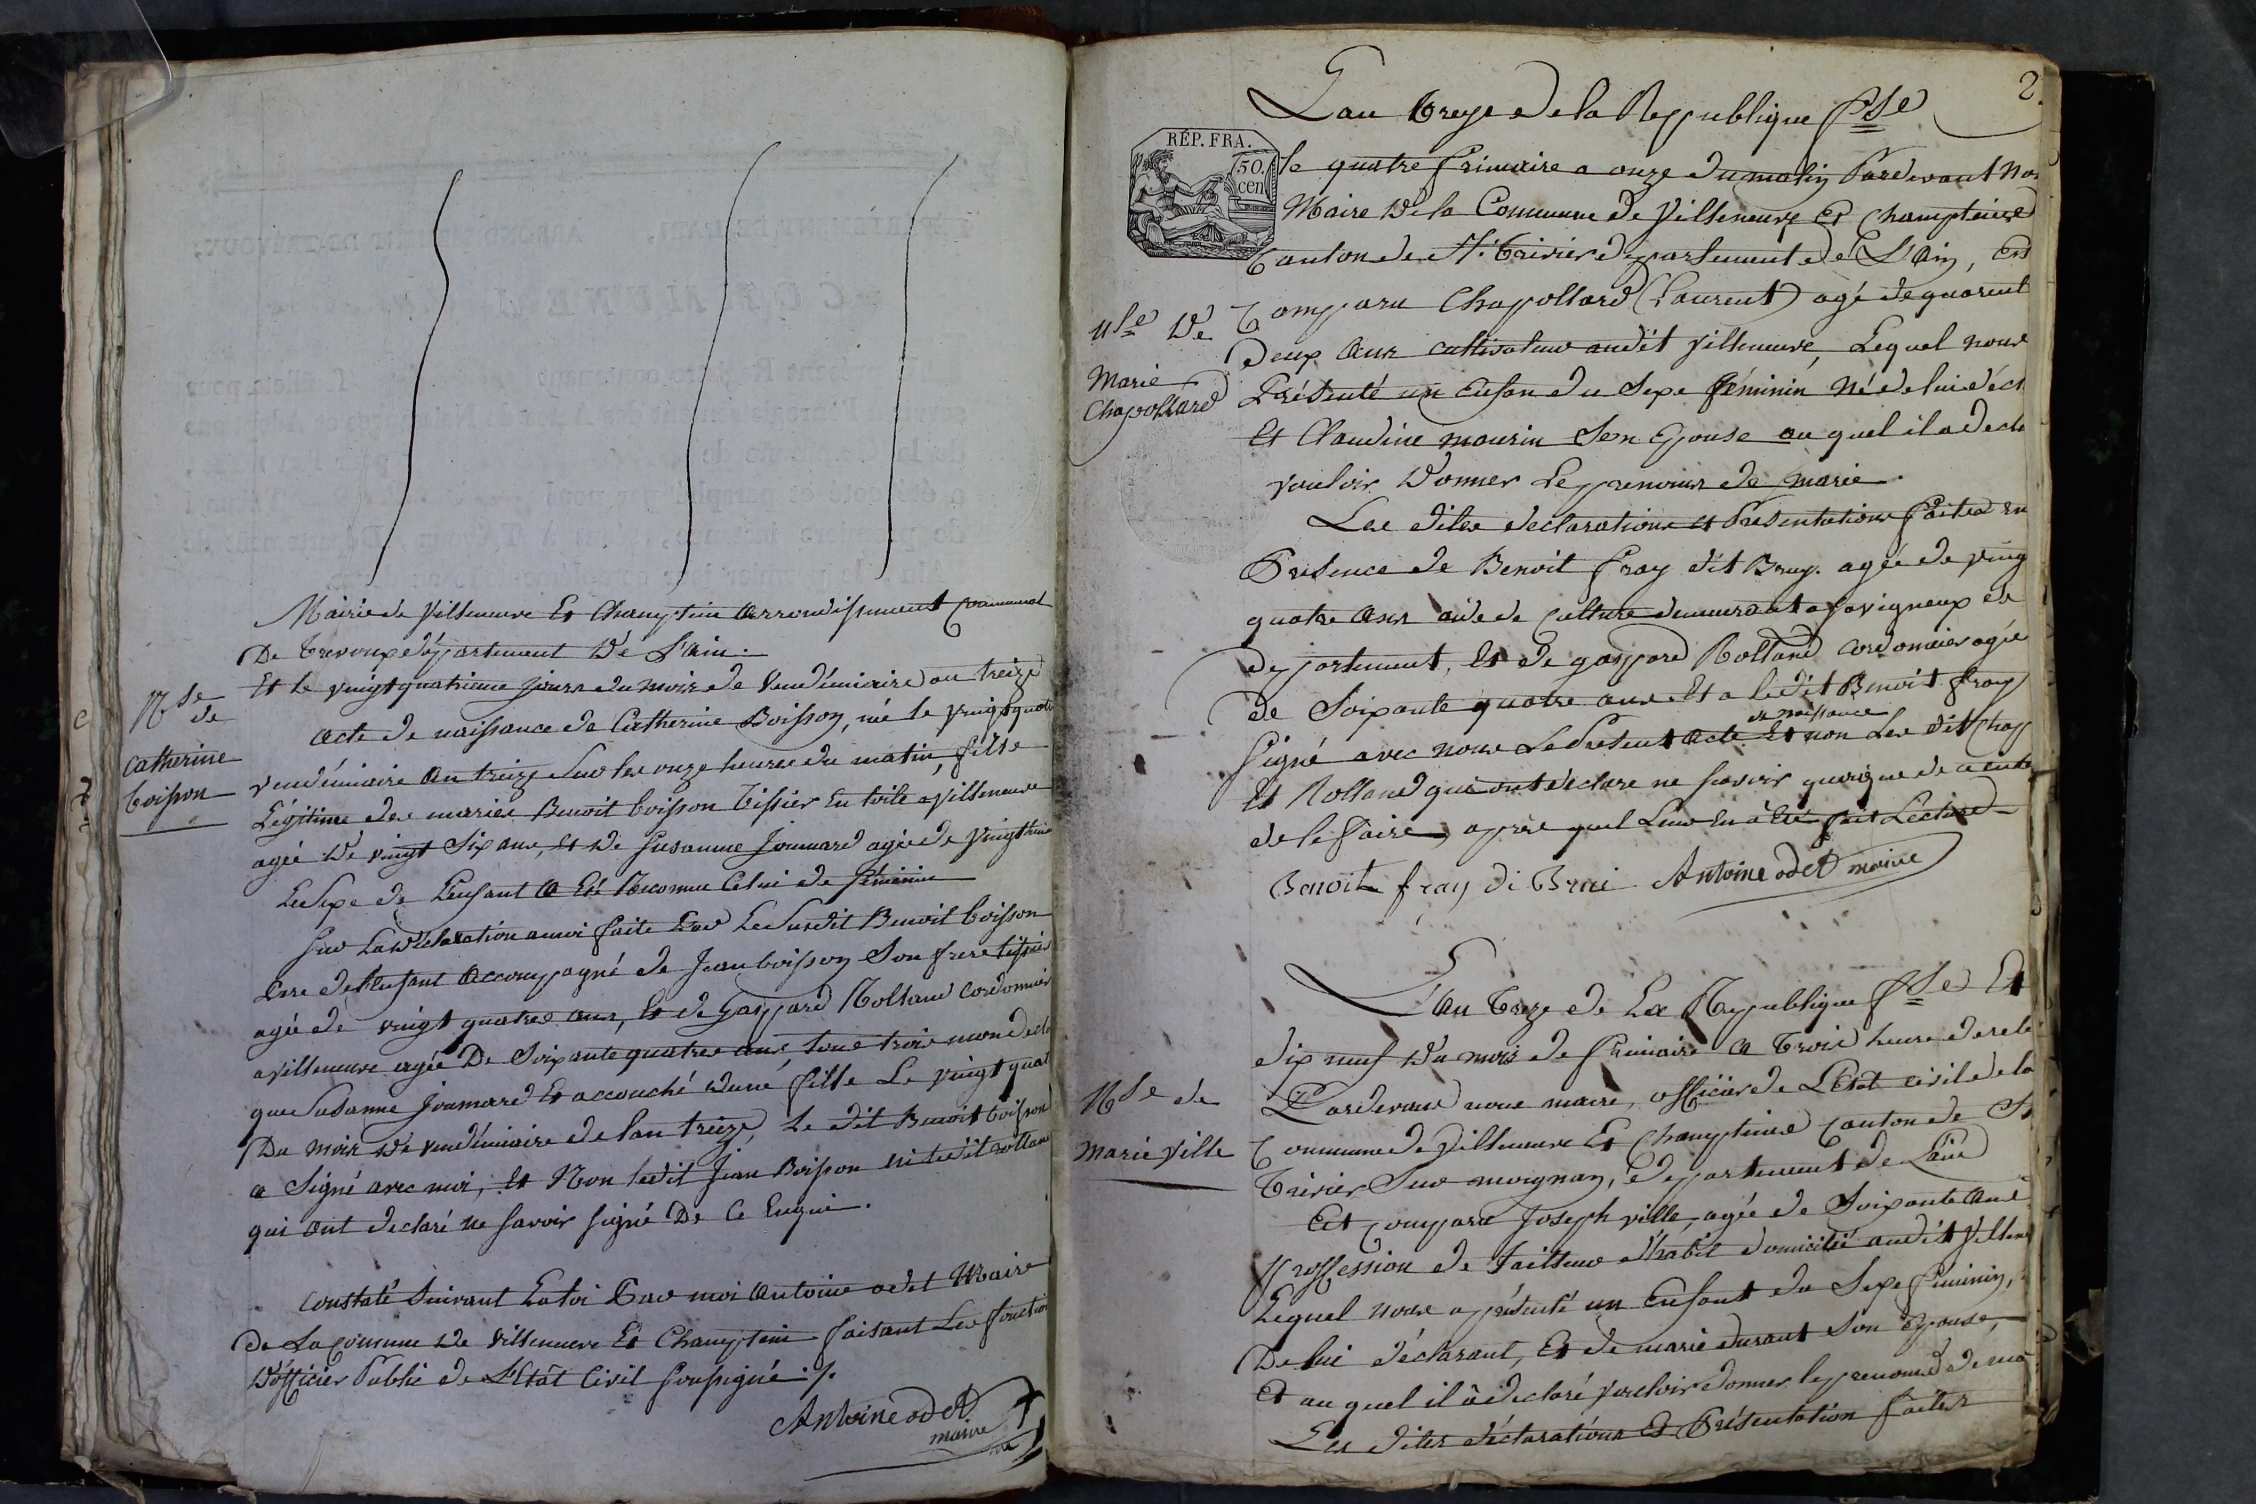 Mairie de Villeneuve Et Champtein arrondissement Communal
De Trevoux département De L'ain.
Et le vingt quatrieme jours du mois de Vendémiaire an treize
N.se de Catherine boisson
acte de naissance de Catherine Boisson, née le vingt quatre
vendémiaire An treize Sur les onze heures du matin, fille
Légitime des mariés Benoit boisson Tissier En toile a Villeneuve
agée De vingt Six ans, Et De Susanne Joumard agée de Vingt
Le Sexe de L'enfant a Eté Reconnu Celui de féminin
Sur La déclaration a moi faite Par Le Susdit Benoit boisson
Pere de L'enfant Accompagné de Jean boisson Son frere tissier
agée de vingt quatre ans, Et de Gaspard Rolland Cordonnier
a villeneuve agée De Soixante quatre ans, tous trois mon decla
que Susanne Joumard Et accouché d'une fille Le vingt quat
Du mois de vendémiaire de l'an treize, Le dit Benoit boisson
a Signé avec moi, Et Non ledit Jean Boisson ni ledit rolland
qui Ont declaré ne Savoir signé De Ce Enquis.
Constaté Suivant La loi Par moi Antoine odet Maire
De La Commune De Villeneuve Et Champtein faisant Les fonction
D'officier Public de L'Etât Civil soussigné ./.
Antoine odet
maire
2.
L'an treze de la Republique f.se
RÉP. FRA.
50.
cen
le quatre frimaire a onze du matin Pardevant Nou
Maire de la Commune de Villeneuve Et Champteins
Canton de St. Trivier departement de L'Ain, Est
N.se De
Marie
Chapollard
Comparu Chapollard (Laurent) agé de quarent
Deux Ans cultivateur audit villeneuve, Lequel nous
Présenté un Enfan du Sexe féminin Né de lui décl
Et Claudine mourin Son Epouse au quel il a decla
vouloir Donner Le prenoms de marie.
Les dites declarations et Presentations faites En
Presence de Benoit fray dit Bruy. agée de ving
quatre Ans aide de Culture demeurant a Savigneux de
departement, Et de gaspard Rolland cordonnier agée
de Soixante quatre ans. Et a ledit Benoit fray
Signé avec nous Le Présent Acte de naissance Et non Les dit Chap
Et Rolland qui ont declare ne Savoir quoique de
de le faire, après quel Leur En à Eté fait Lecture
Benoit fray di Brui Antoine odet maire
L'An treze de La Republique f.se Et
dix neuf du mois de frimaire a trois heure de rele
N.se de
Marie ville
Pardevant nous maire, officier de L'Etat civil de la
Commune de Villeneuve Et Champteins Canton de St
Trivier Sur moignan, departement de L'ain
Est comparu Joseph ville, agée de Soixante ans
proffession de Tailleur d'habit domicilié audit Villen
Lequel nous a présenté un Enfant du Sexe féminin,
De lui déclarant, Et de marie durant Son épouse,
Et au quel il à declaré vouloir donner le prenoms de ma
Les dites déclarations Et Présentation faites